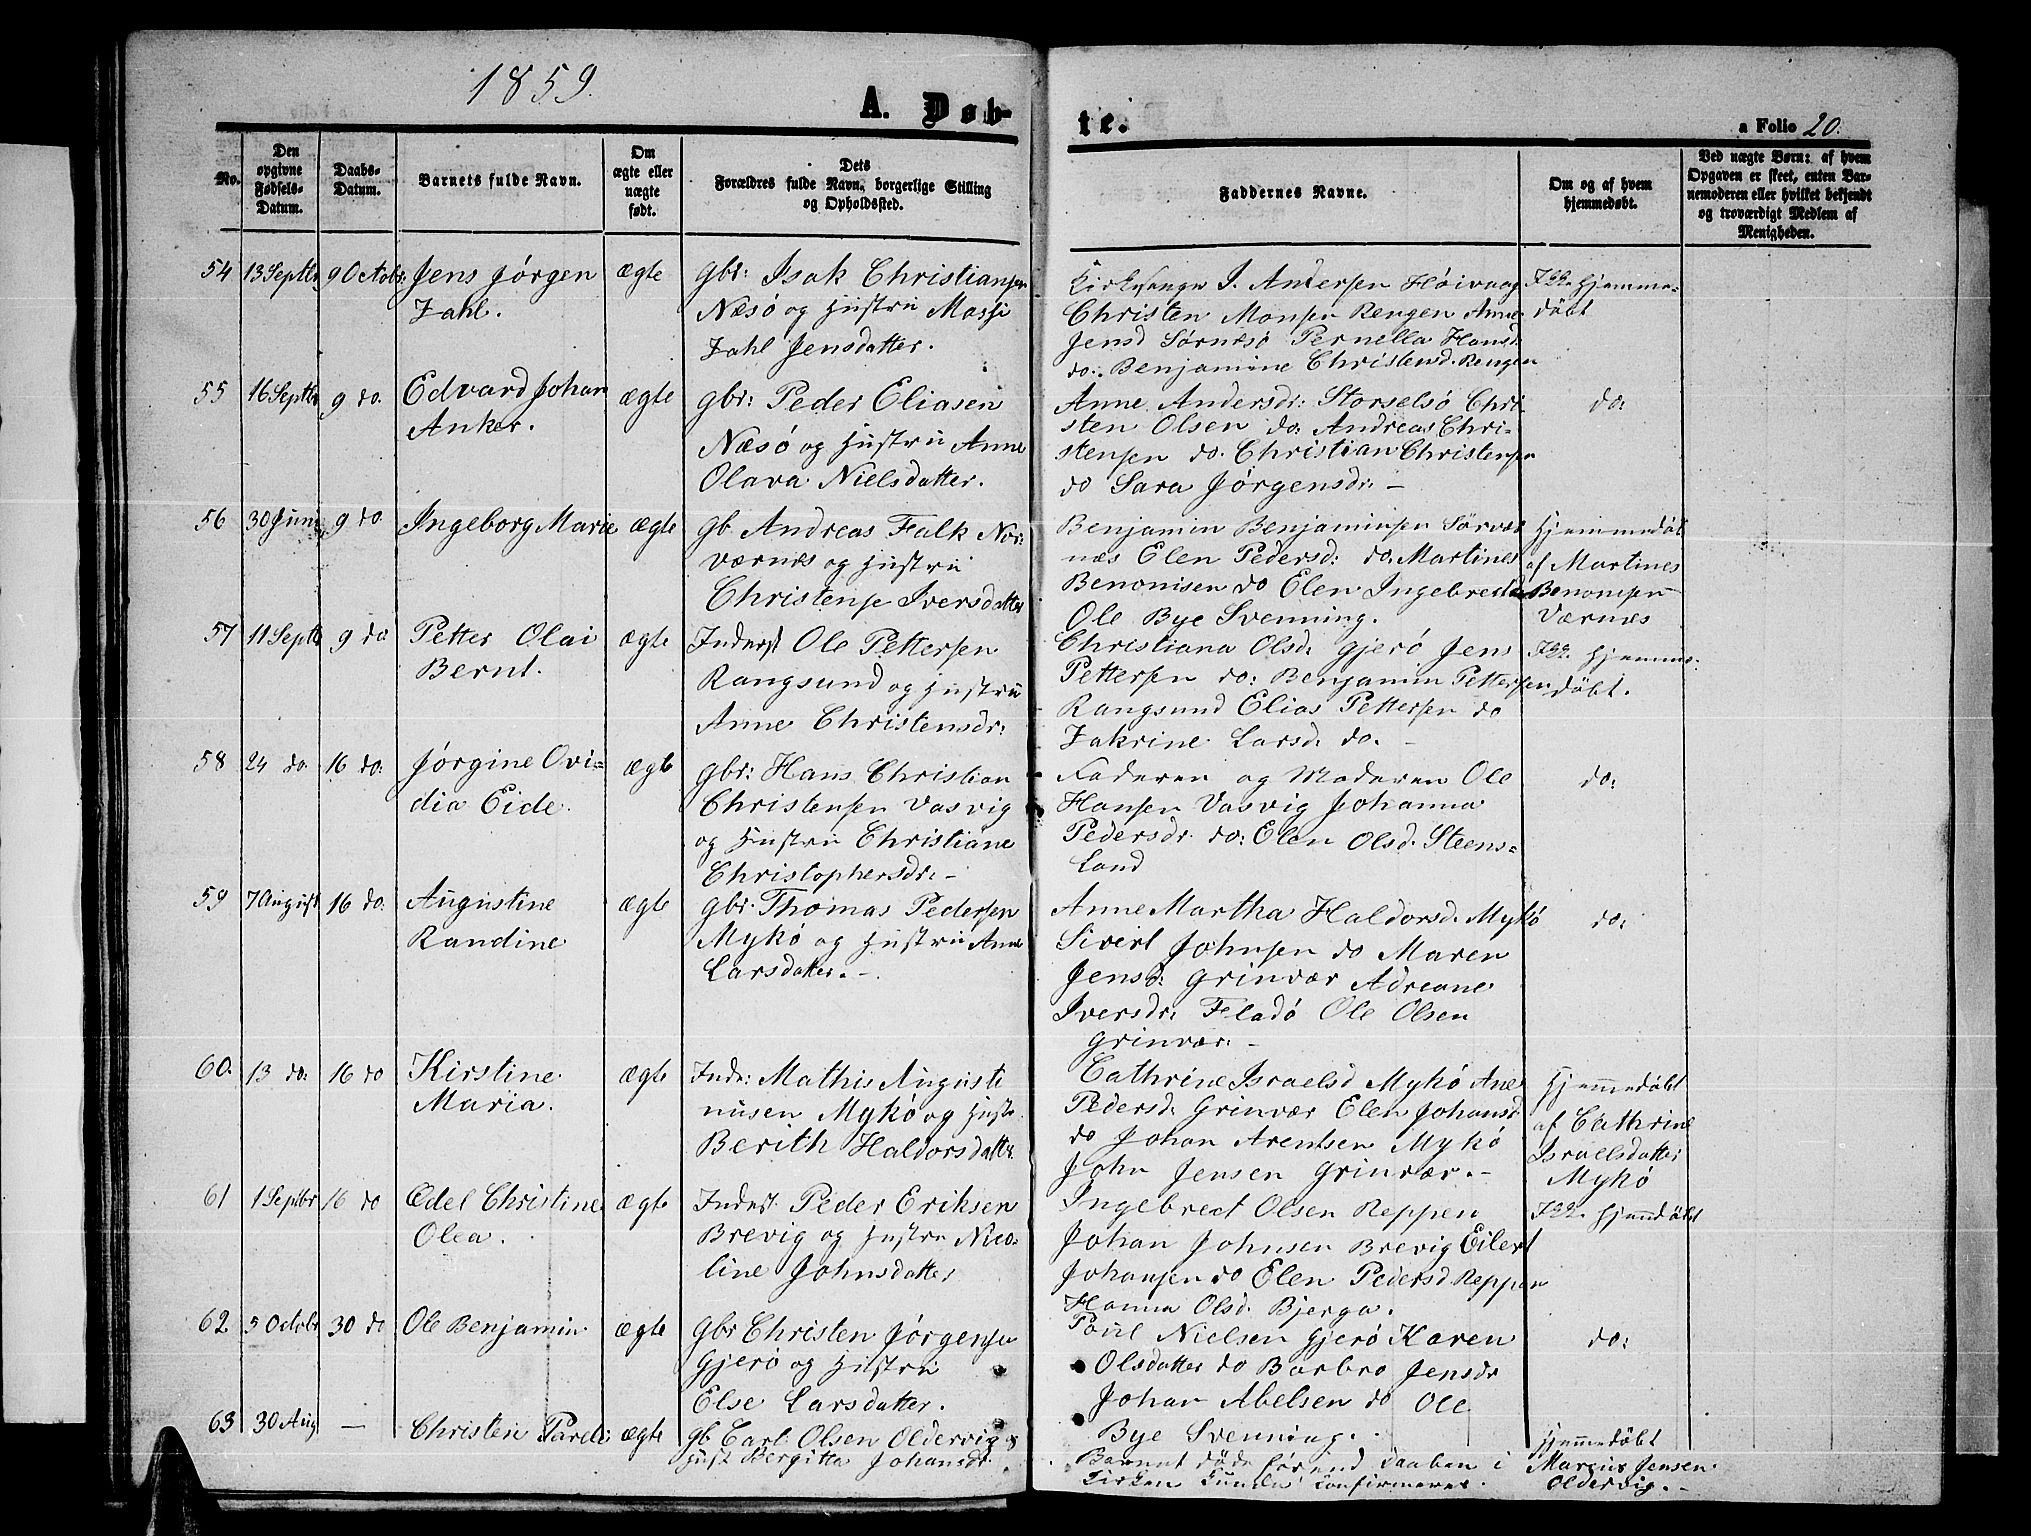 1859.
A. Døb-
te.
a Folio 20.
No.
Den opgivne Fødsels-Datum.
Daabs-Datum.
Barnets fulde Navn.
Om ægte eller uægte født.
Dets Forældres fulde Navn, borgerlige Stilling og Opholdssted.
Faddernes Navne.
Om og af hvem hjemmedøbt.
Ved uægte Børn: af hvem Opgaven er skeet, enten Barnemoderen eller hvilket bekjendt og troværdigt Medlem af Menigheden.
54 13 Septbr 9 Octobr. Jens Jørgen Zahl. ægte
gbr: Isak Christiansen
Næsø og Hustru Massi
Zahl Jensdatter.
Kirkesanger J. Andersen Høivaag
Christen Monsen Rengen Anne
Jensd Sørnesø Pernella Hansd.
do. Benjamine Christensd. Rengen
Ikke Hjemme-
døbt
55 16 Septbr 9 do. Edvard Johan Anker. ægte
gbr: Peder Eliasen
Næsø og Hustru Anne
Olava Nielsdatter.
Anne Andersdr: Storselsø Chri-
sten Olsen do: Andreas Chri-
stensen do. Christian Christensen
do Sara Jørgensdr. -
do:
56 30 Juni 9 do. Ingeborg Marie ægte
gb. Andreas Falk Nor-
værnes og Hustru
Christense Iversdatter
Benjamin Benjaminsen Sørvær
næs Elen Pedersd: do. Martines
Benonisen do Elen Ingebretsd
Ole Bye Svenning.
Hjemmedøbt
af Martines
Benonisen
Værnes
57 11 Septb 9 do Petter Olai Bernt. ægte
Inderst Ole Pettersen
Rangsund og Hustru
Anne Christensdr:
Christiana Olsd. Gjerø Jens
Pettersen do: Benjamin Pettersen
Rangsund Elias Pettersen do
Zakrine Larsd. do. -
Ikke Hjemme-
døbt.
58 24 do. 16 do. Jørgine Ovi-
dia Eide. ægte
gbr: Hans Christian
Christensen Vasvig
og Hustru Christiane
Christophersdr. -
Faderen og Moderen Ole
Hansen Vasvig Johanna
Pedersdr. do: Elen Olsd. Steens-
land
do:
59 7 August 16 do. Augustine Randine ægte
gbr. Thomas Pedersen
Mykø og Hustru Anne
Larsdatter. -
Anne Martha Haldorsd. Mykø
Sivert Johnsen do Maren
Jensd: Grinvær Adreane
Iversdr: Fladø Ole Olsen
Grinvær. -
do:
60. 13 do: 16 do Kirstine Maria. ægte
Indr: Mathis Augusti
nusen Mykø og Hustr.
Berith Haldorsdattr.
Cathrine Israelsd Mykø Ane
Pedersd. Grinvær Elen Johansd
do Johan Arentsen Mykø
John Jensen Grinvær. -
Hjemmedøbt
af Cathrine
Israelsdatter
Mykø
61 1 Septbr 16 do Ædel Christine Olea. ægte
Inderst. Peder Eriksen
Brevig og Hustru Nico-
line Johnsdatter
Ingebrect Olsen Reppen
Johan Johnsen Brevig Eilert
Johansen do Elen Pedersd Reppen
Hanna Olsd. Bjerga.
Ikke Hjemdøbt
62 5 Octobr 30 do Ole Benjamin ægte
gbr Christen Jørgensen
Gjerø og Hustru
Else Larsdatter.
Poul Nielsen Gjerø Karen
Olsdatter do Barbro Jensdr
Johan Abelsen do Ole
Bye Svenning.
do:
63 30 Aug — Christen ægte
gb. Carl Olsen Oldervig &
Hust Bergitta Johansdr.
Barnet døde førend Daaben i
Kirken kunde confirmeres.
Hjemmedøbt
Marcus Jensen
Oldervig. -